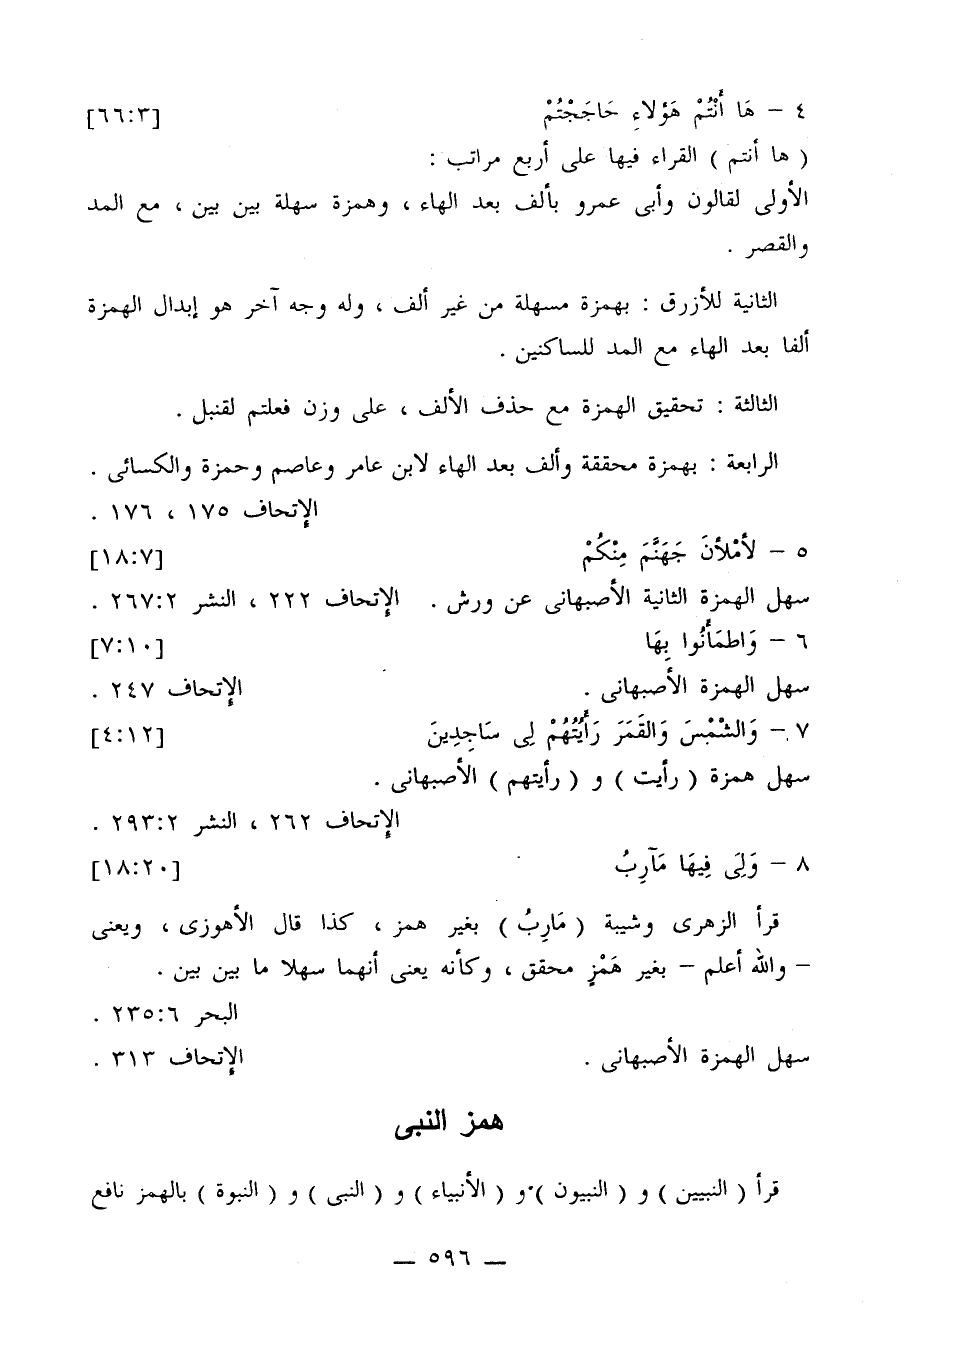 ٤ – هَا أَنْتُمْ هَؤُلاءِ حَاجَجْتُمْ [٦٦:٣]
( ها أنتم ) القراء فيها على أربع مراتب :
الأولى لقالون وأبى عمرو بألف بعد الهاء ، وهمزة سهلة بين بين ، مع المد
والقصر .
الثانية للأزرق : بهمزة مسهلة من غير ألف ، وله وجه آخر هو إبدال الهمزة
ألفا بعد الهاء مع المد للساكنين .
الثالثة : تحقيق الهمزة مع حذف الألف ، على وزن فعلتم لقنبل .
الرابعة : بهمزة محققة وألف بعد الهاء لابن عامر وعاصم وحمزة والكسائى .
الإتحاف ١٧٥ ، ١٧٦ .
٥ – لأَمْلأنَ جَهَنَّمَ مِنْكُمْ [١٨:٧]
سهل الهمزة الثانية الأصبهانى عن ورش . الإتحاف ٢٢٢ ، النشر ٢٦٧:٢ .
٦ – وَاطمَأَنُوا بِهَا [٧:١٠]
سهل الهمزة الأصبهانى . الإتحاف ٢٤٧ .
٧ – وَالشَّمْسَ وَالقَمَرَ رَأَيْتُهُمْ لِى سَاجِدِينَ [٤:١٢]
سهل همزة ( رأيت ) و ( رأيتهم ) الأصبهانى .
الإتحاف ٢٦٢ ، النشر ٢٩٣:٢ .
٨ – وَلِىَ فِيهَا مَآرِبُ [١٨:٢٠]
قرأ الزهرى وشيبة ( مَارِبُ ) بغير همز ، كذا قال الأهوزى ، ويعنى
– والله أعلم – بغير هَمْزٍ محقق ، وكأنه يعنى أنهما سهلا ما بين بين .
البحر ٢٣٥:٦ .
سهل الهمزة الأصبهانى . الإتحاف ٣١٣ .
همز النبى
قرأ ( النبيين ) و ( النبيون ) و ( الأنبياء ) و ( النبى ) و ( النبوة ) بالهمز نافع
— ٥٩٦ —